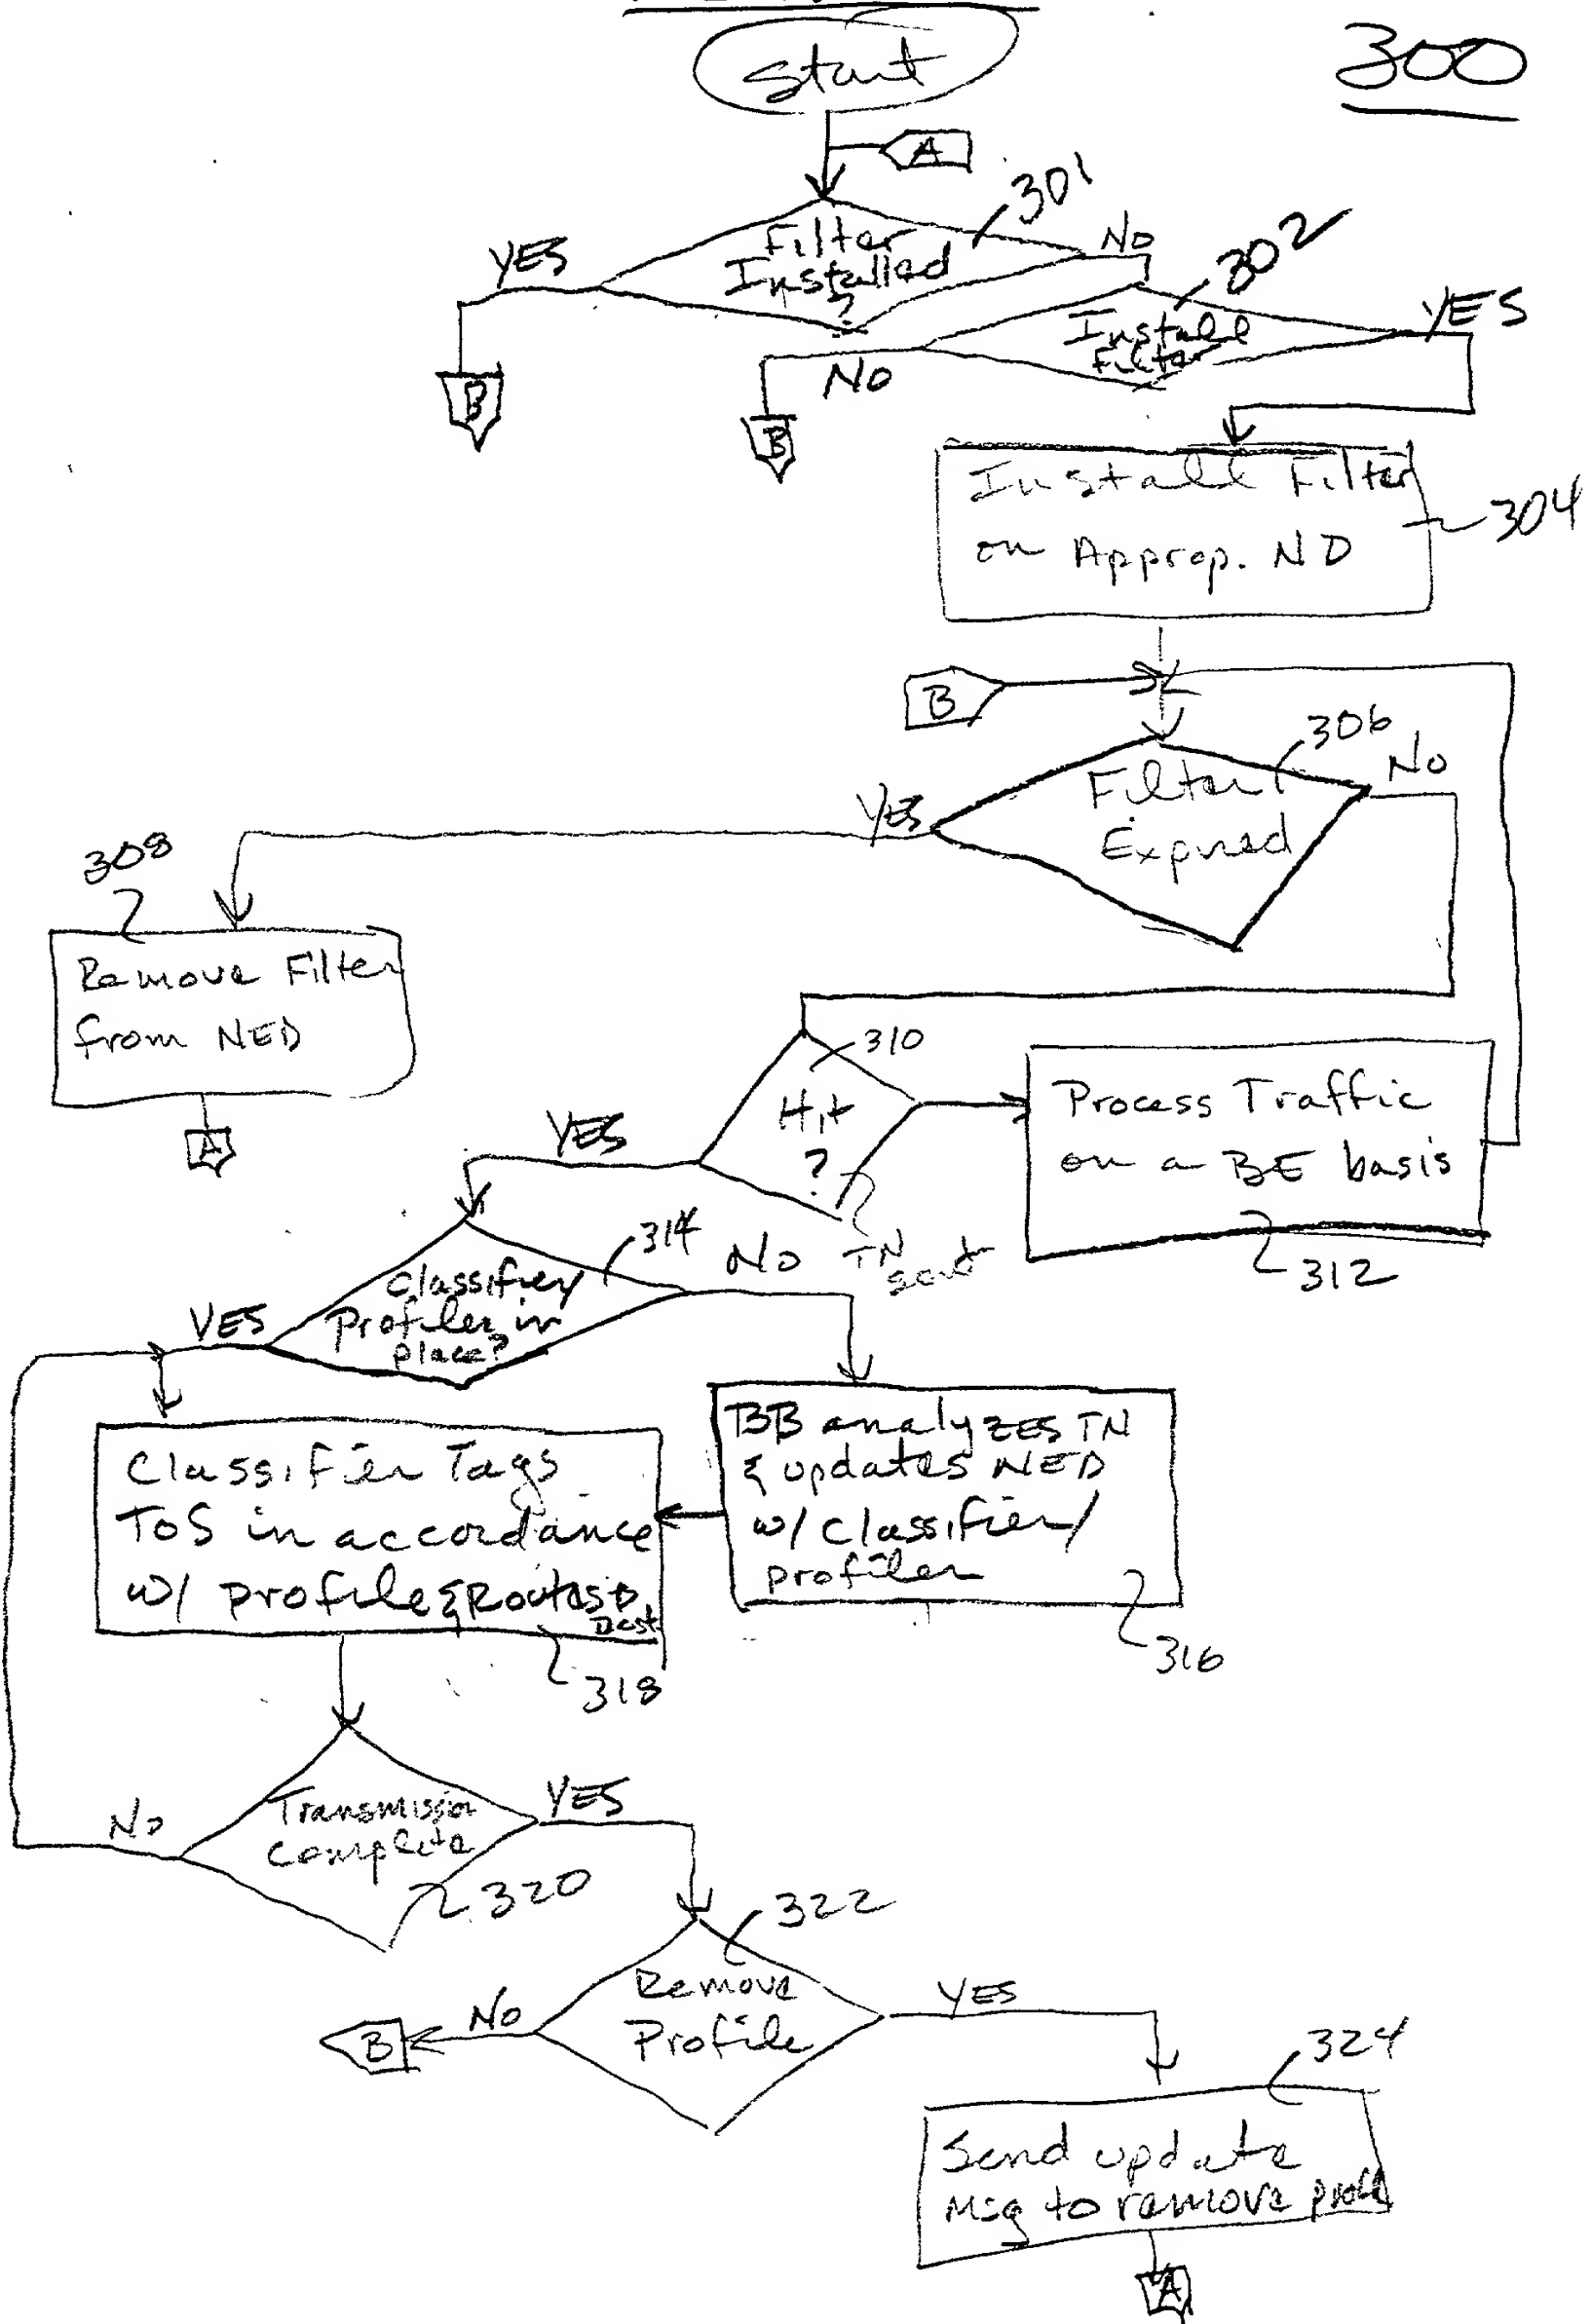 Start
300
A
301
Filter
Installed
?
YES
No
302
Install
Filter
YES
No
B
B
Install Filter
on Approp. ND
304
B
306
Filter
Expired
No
YES
308
Remove Filter
from NED
A
310
Hit
?
YES
TN
sent
Process Traffic
on a BE basis
312
314
Classifier/
Profiler in
place?
No
YES
BB analyzes TN
& updates NED
w/ Classifier/
profiler
316
Classifier Tags
ToS in accordance
w/ profile & Routes →
Dest
318
Transmission
Complete
YES
No
320
322
Remove
Profile
No
B
YES
324
Send update
Msg to remove profile
A